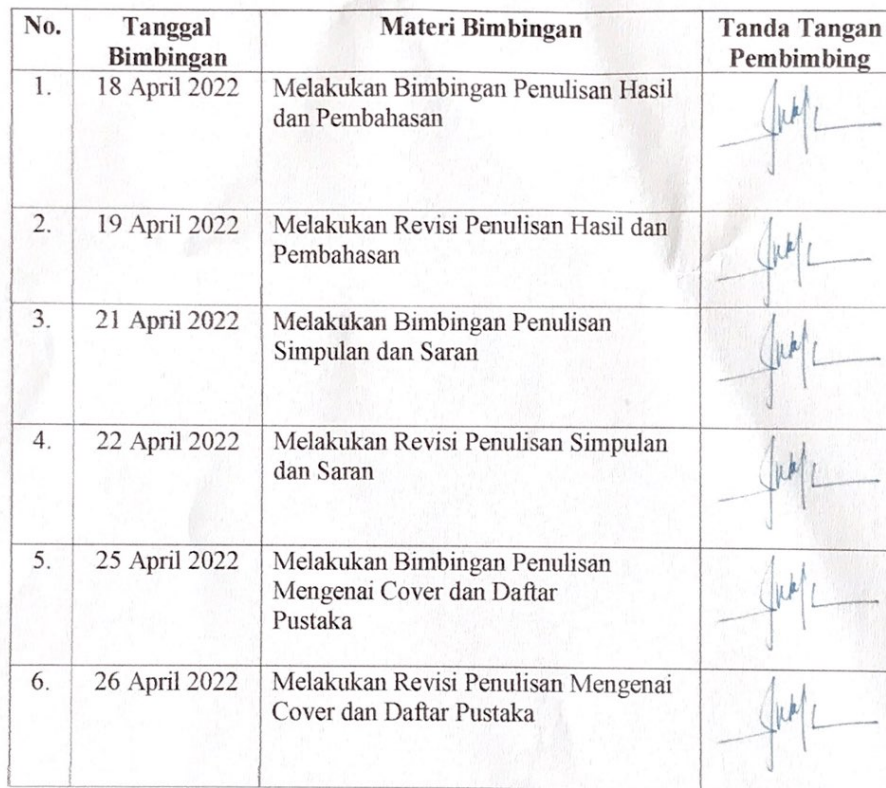 No. Tanggal Bimbingan Materi Bimbingan Tanda Tangan Pembimbing
1. 18 April 2022 Melakukan Bimbingan Penulisan Hasil
dan Pembahasan
2. 19 April 2022 Melakukan Revisi Penulisan Hasil dan
Pembahasan
3. 21 April 2022 Melakukan Bimbingan Penulisan
Simpulan dan Saran
4. 22 April 2022 Melakukan Revisi Penulisan Simpulan
dan Saran
5. 25 April 2022 Melakukan Bimbingan Penulisan
Mengenai Cover dan Daftar
Pustaka
6. 26 April 2022 Melakukan Revisi Penulisan Mengenai
Cover dan Daftar Pustaka